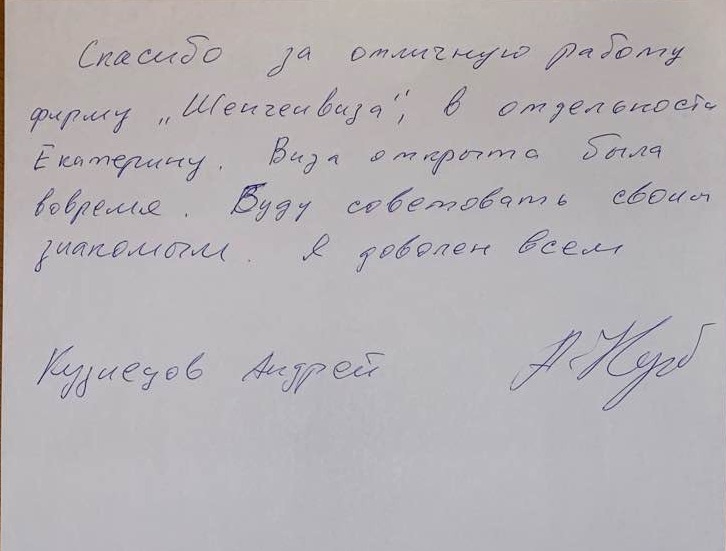 Спасибо за отличную работу
фирму „Шенгенвиза“, в отдельности
Екатерину. Виза открыта была
вовремя. Буду советовать своим
знакомым. Я доволен всем
Кузнецов Андрей